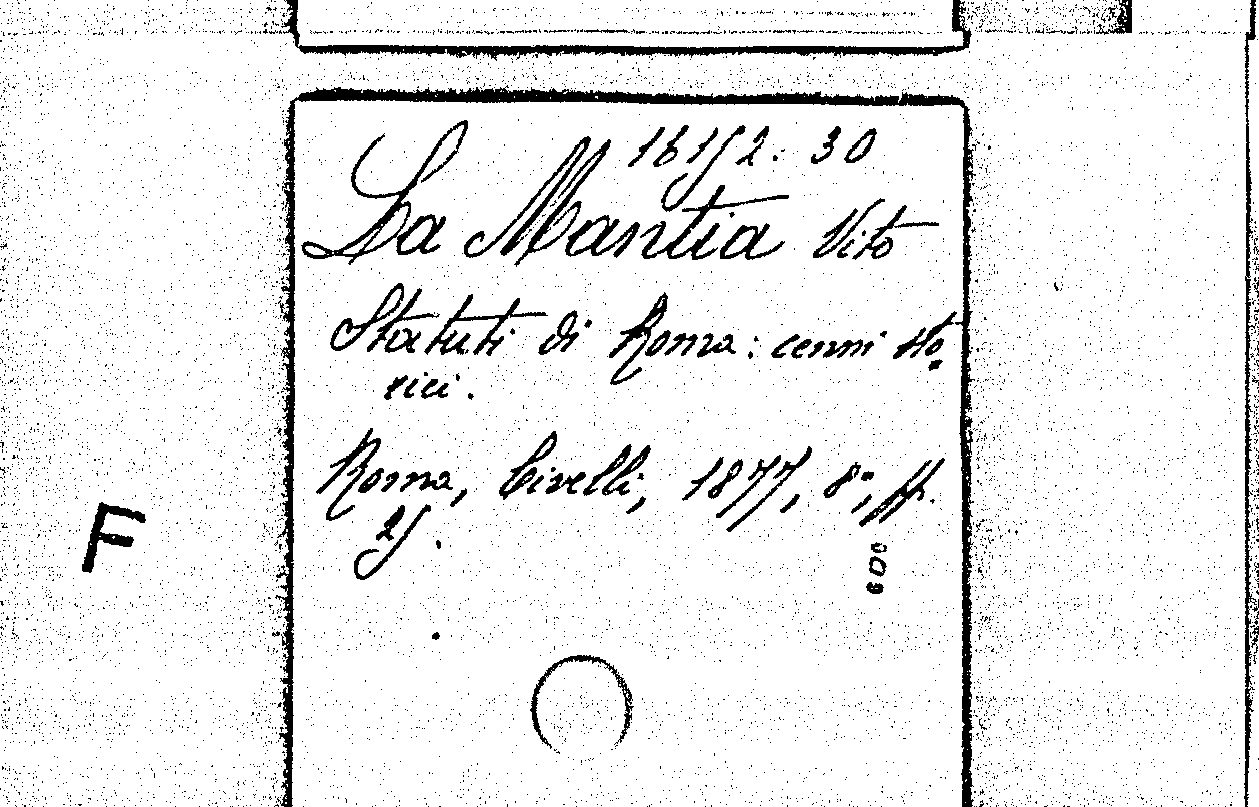 16152: 30
La Mantia Vito
Statuti di Roma: cenni sto-
rici.
Roma, Civelli, 1877, 8°, pp.
25.
600
F